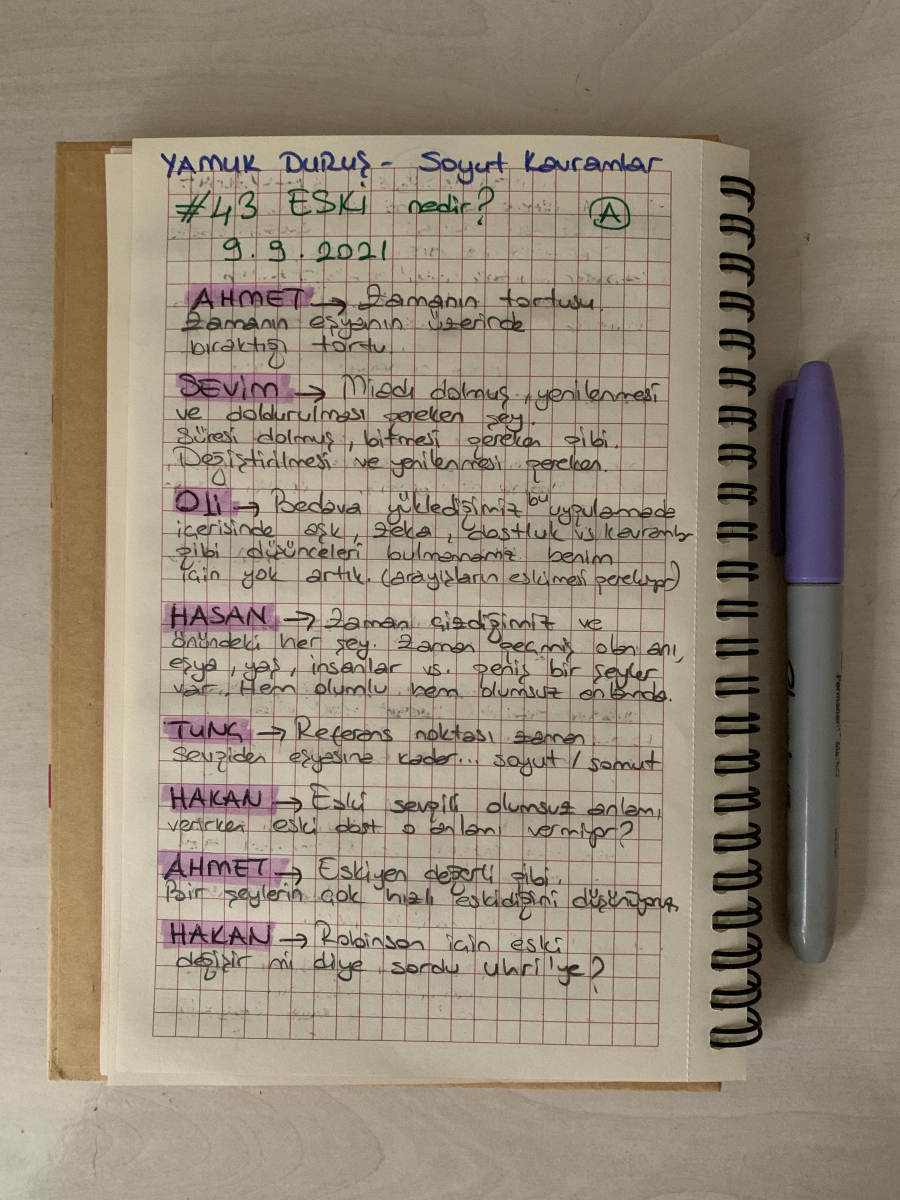 YAMUK DURUŞ - Soyut Kavramlar
#43 ESKİ nedir?
A
9.9.2021
AHMET → Zamanın tortusu.
Zamanın eşyanın üzerinde
bıraktığı tortu
SEVİM → Miadı dolmuş, yenilenmesi
ve doldurulması gereken şey.
Süresi dolmuş, bitmesi gereken gibi.
Değiştirilmesi ve yenilenmesi gereken.
Oli → Bedava yüklediğimiz bu uygulamada
içerisinde aşk, zeka, dostluk vs kavramlar
gibi düşünceleri bulmamamız benim
için yok artık. (arayışların eskimesi gerekiyor)
HASAN → Zaman çizdiğimiz ve
önündeki her şey. Zaman geçmiş olan anı,
eşya, yaş, insanlar vs. geniş bir şeyler
var. Hem olumlu hem olumsuz anlamda.
TUNÇ → Referans noktası zaman
Sevgiden eşyasına kadar... soyut / somut
HAKAN → Eski sevgili olumsuz anlam,
verirken eski dost o anlamı vermiyor?
AHMET → Eskiyen değerli gibi.
Bir şeylerin çok hızlı eskidiğini düşünüyorum
HAKAN → Robinson için eski
değişir mi diye sordu Uhri'ye?